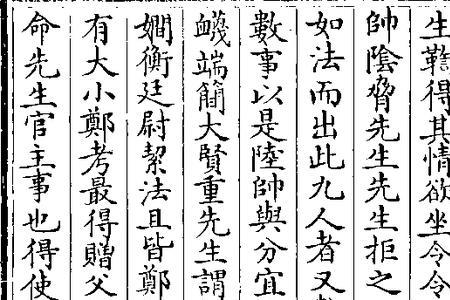 生鞫得其情欲坐令令
帥陰脅先生先生拒之
如法而出此九人者又
數事以是陸帥與分宜
衊端簡大賢重先生謂
嫺衡廷尉絜法且皆鄭
有大小鄭考最得贈父
命先生官主事也得使